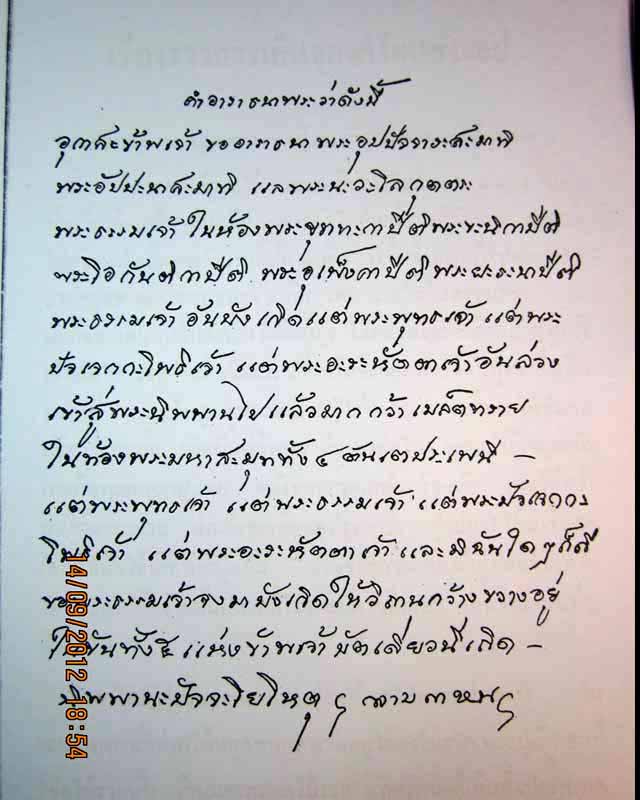 คำอาราธนาพระว่าดังนี้
อุกาสะข้าพเจ้า ขออาราธนา พระอุปปัจจาระสะมาทิ
พระอัปปะนาสะมาทิ แลพระนะวะโลกุตตระ
พระธรรมเจ้า ในห้องพระขุททะกาปีติ พระขะนิกาปีติ
พระโอกันติกาปีติ พระอุเพ็งคาปีติ พระผะระนาปีติ
พระธรรมเจ้า อันบังเกิดแต่พระพุทธเจ้า แต่พระ
ปัจเจกกะโพธิเจ้า แต่พระอะระหัตตาเจ้าอันล่วง
เข้าสู่พระนิพพานไปแล้วมาก กว้าเมล็ดทราย
ในท้องพระมหาสะมุททั้ง ๔ ตันเตประเพนี –
แต่พระพุทธเจ้า แต่พระธรรมเจ้า แต่พระปัจเจกกะ
โพธิเจ้า แต่พระอะระหัตตาเจ้า และมีฉันใดๆก็ดี
ขอพระธรรมเจ้าจงมาบังเกิดให้วิถานกว้างขวางอยู่
ในขันทั้ง ๕ แห่งข้าพเจ้า บัดเดี๋ยวนี้เถิด –
นิพพานะปัจจะโยโหตุ ๆ
14/09/2012 18:54